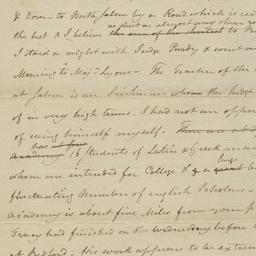 & Down to North Salem by a Road which is rec
as short as almost any other you
the best & I believe the one of the shortest to
I staid a night with Judge Purdy & went on
Morning to Maj.r Lyons — The Teacher of the
at Salem is an Irishman whom the Judge
of in very high terms. I had not an oppor
of seeing himself myself. There are at
has at present
Academy 16 Students of Latin & Greek
whom are intended for College & a large
fluctuating Number of english Scholars —
Academy is about five Miles from your
Tracy had finished on the Wednesday before
at Bedford; this work appears to be extrem